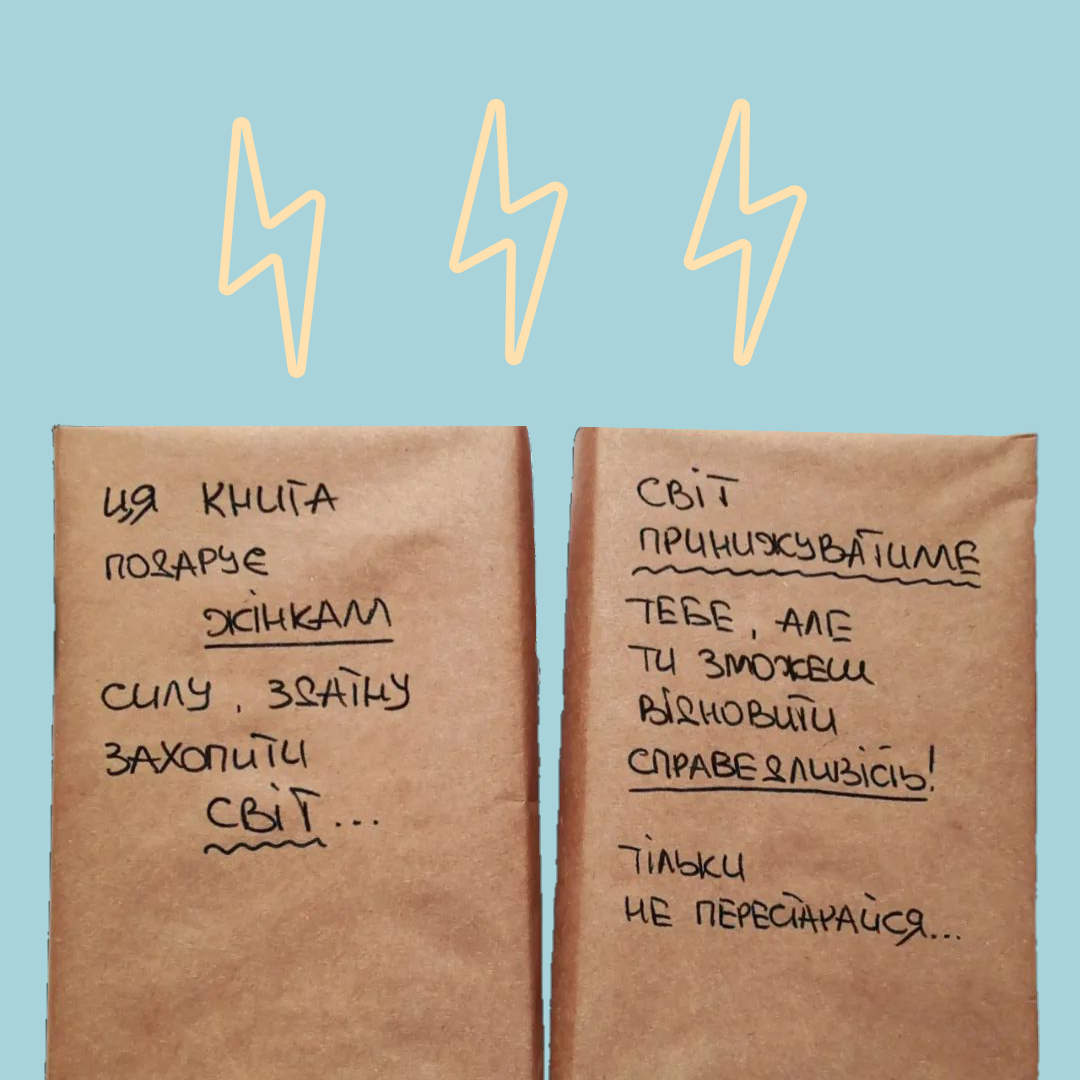 ЦЯ КНИГА
ПОДАРУЄ
ЖІНКАМ
СИЛУ, ЗДАТНУ
ЗАХОПИТИ
СВІТ...
СВІТ
ПРИНИЖУВАТИМЕ
ТЕБЕ, АЛЕ
ТИ ЗМОЖЕШ
ВІДНОВИТИ
СПРАВЕДЛИВІСТЬ!
ТІЛЬКИ
НЕ ПЕРЕСТАРАЙСЯ...